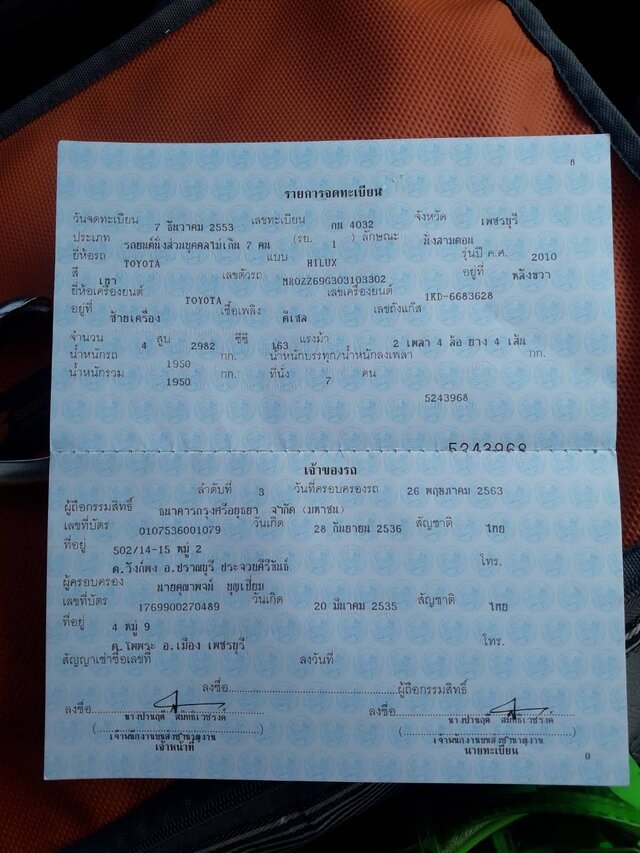 8
รายการจดทะเบียน
วันจดทะเบียน 7 ธันวาคม 2553 เลขทะเบียน กน 4032 จังหวัด เพชรบุรี
ประเภท รถยนต์นั่งส่วนบุคคลไม่เกิน 7 คน (รย. 1 ) ลักษณะ นั่งสามตอน
ยี่ห้อรถ TOYOTA แบบ HILUX รุ่นปี ค.ศ. 2010
สี เทา เลขตัวรถ MR0ZZ69G303103302 อยู่ที่ หลังขวา
ยี่ห้อเครื่องยนต์ TOYOTA เลขเครื่องยนต์ 1KD-6683628
อยู่ที่ ซ้ายเครื่อง เชื้อเพลิง ดีเซล เลขถังแก๊ส
จำนวน 4 สูบ 2982 ซีซี 163 แรงม้า 2 เพลา 4 ล้อ ยาง 4 เส้น
น้ำหนักรถ 1950 กก. น้ำหนักบรรทุก/น้ำหนักลงเพลา กก.
น้ำหนักรวม 1950 กก. ที่นั่ง 7 คน
5243968
5243968
เจ้าของรถ
ลำดับที่ 3 วันที่ครอบครองรถ 26 พฤษภาคม 2563
ผู้ถือกรรมสิทธิ์ ธนาคารกรุงศรีอยุธยา จำกัด (มหาชน)
เลขที่บัตร 0107536001079 วันเกิด 28 กันยายน 2536 สัญชาติ ไทย
ที่อยู่ 502/14-15 หมู่ 2
ต.วังก์พง อ.ปราณบุรี ประจวบคีรีขันธ์ โทร.
ผู้ครอบครอง นายคุณาพจน์ บุญเปี่ยม
เลขที่บัตร 1769900270489 วันเกิด 20 มีนาคม 2535 สัญชาติ ไทย
ที่อยู่ 4 หมู่ 9
ต.โพพระ อ.เมือง เพชรบุรี โทร.
สัญญาเช่าซื้อเลขที่ ลงวันที่
ลงชื่อ ผู้ถือกรรมสิทธิ์
ลงชื่อ ลงชื่อ
นางปานฤดี นางปานฤดี
เจ้าพนักงานขนส่งชำนาญงาน เจ้าพนักงานขนส่งชำนาญงาน
เจ้าหน้าที่ นายทะเบียน